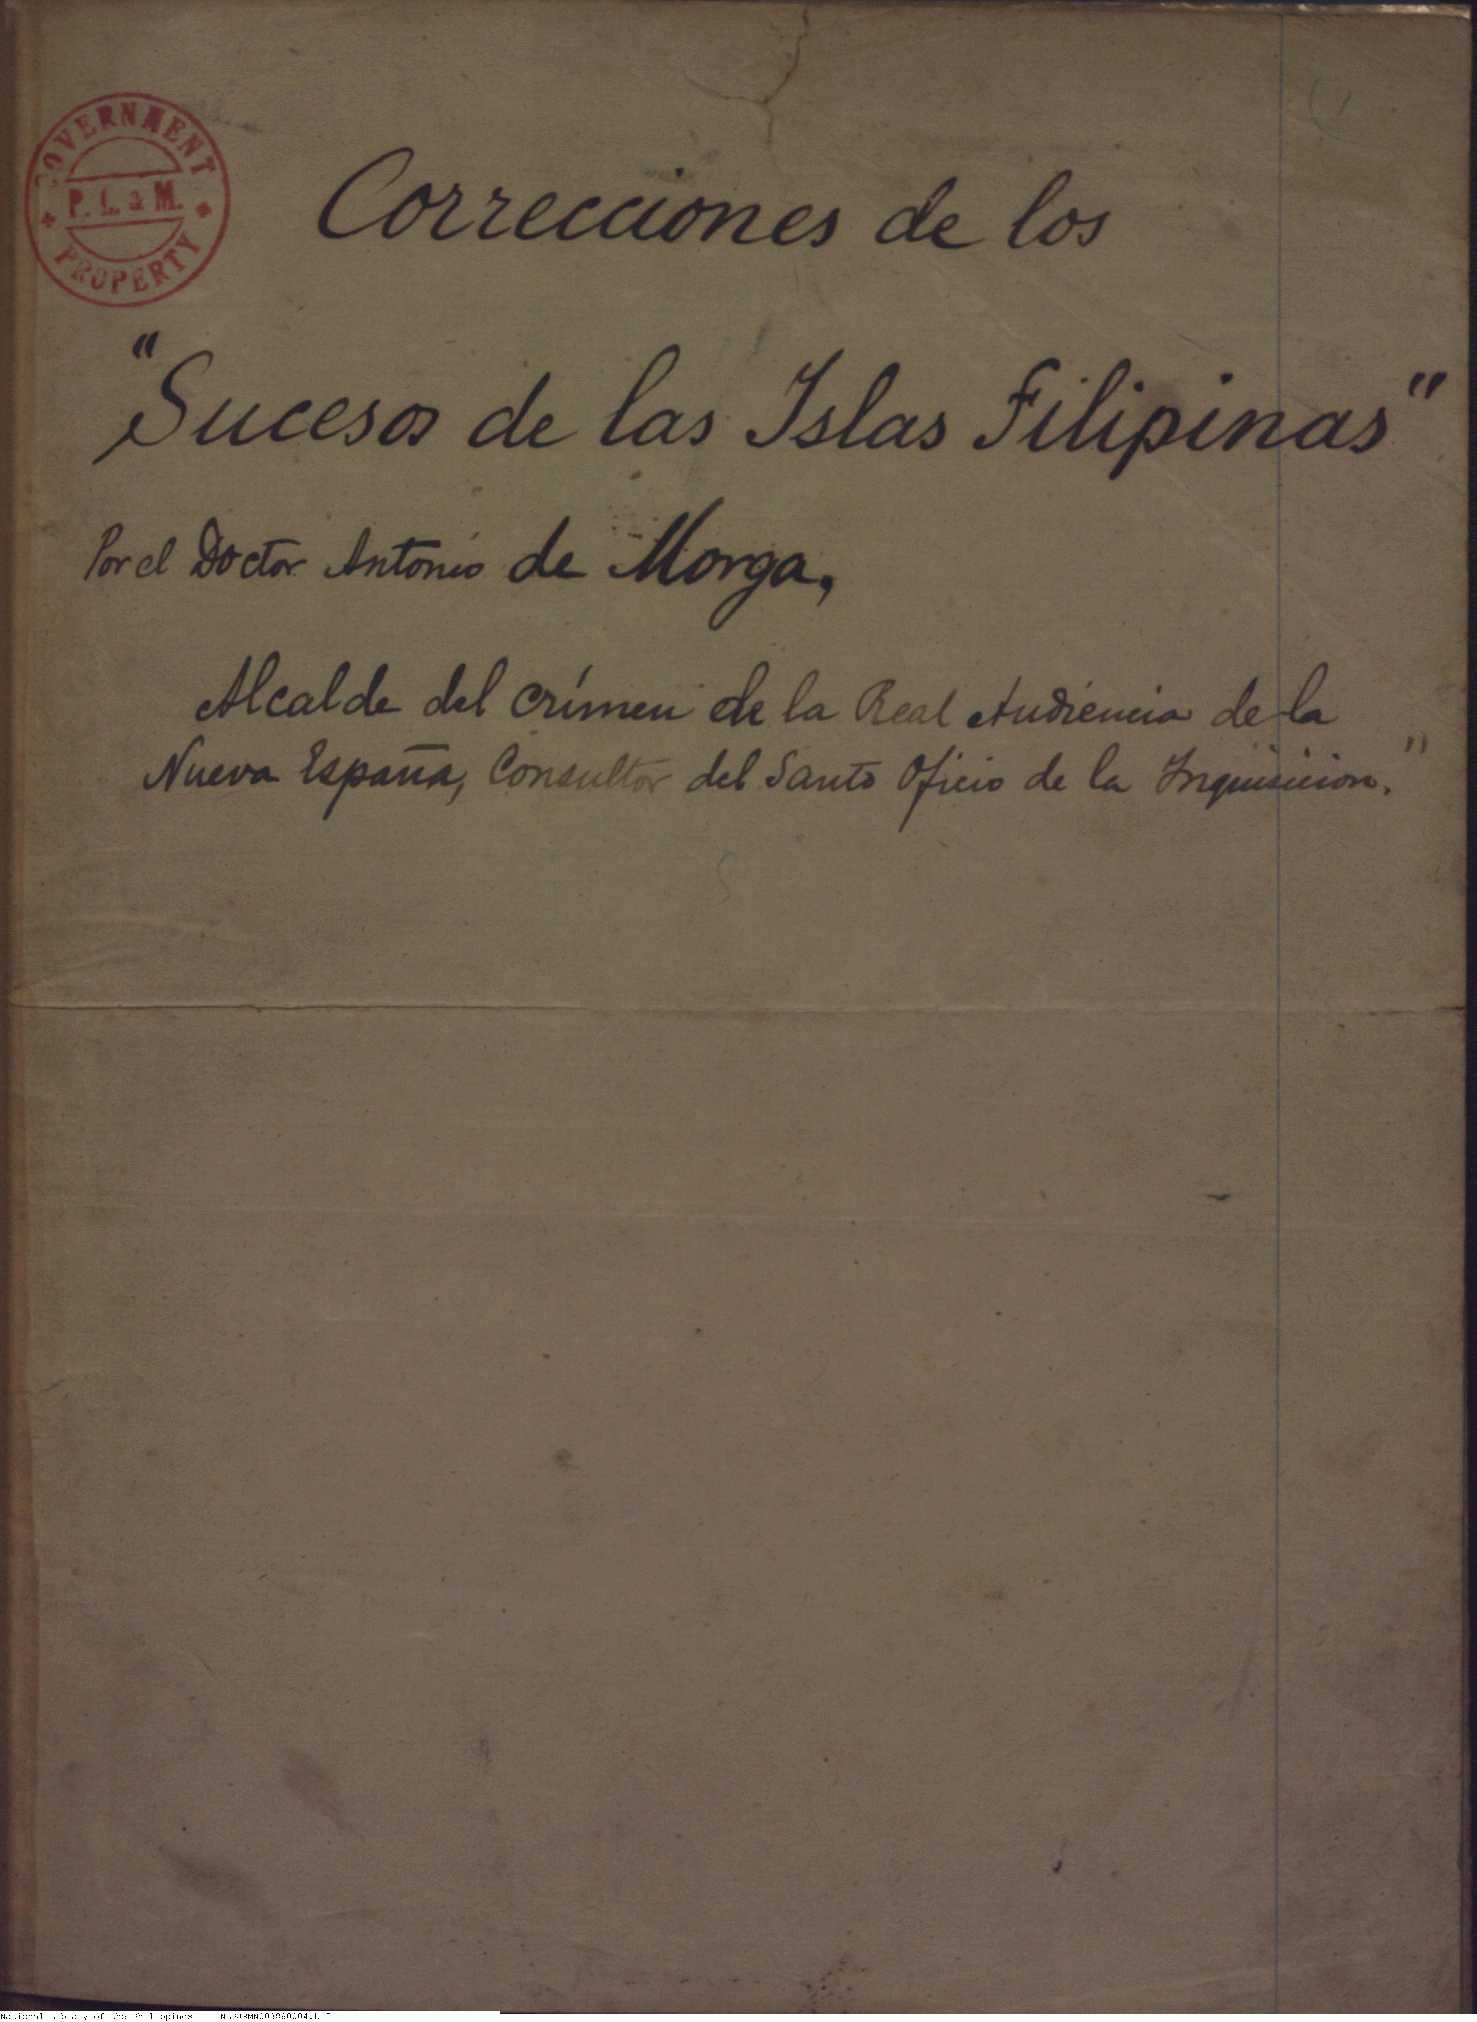 GOVERNMENT
P. L. & M.
PROPERTY
Correcciones de los
"Sucesos de las Islas Filipinas"
Por el Doctor Antonio de Morga,
Alcalde del crímen de la Real Audiencia de la
Nueva España, Consultor del Santo Oficio de la Inquisicion."
National Library of the Philippines